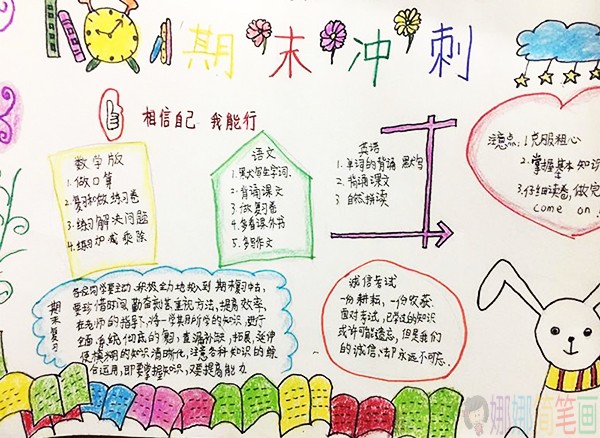 期末冲刺
相信自己 我能行
数学版
1.做口算
2.复习和做练习卷
3.练习解决问题
4.练习加减乘除
语文
1.黑大带生字词.
2.背诵课文
3.做复习卷
4.多看课外书
5.多写作文
英语
1.单词的背诵 默写
2.背诵课文
3.自然拼读
注意点:1.克服粗心
2.掌握基本知识
3.仔细读卷,做完
come on!
期末复习
各位同学要主动、积极全力地投入到期末复习中去,
要珍惜时间,勤奋刻苦重视方法,提高效率,
在老师的指导下,将一学期所学的知识,进行
全面、系统、彻底的复习,查漏补缺,拓展、延伸
使模糊的知识清晰化,注意各种知识的综
合运用,即要掌握知识,又要提高能力
诚信考试
一份耕耘,一份收获
面对考试,已学过的知识
或许可能遗忘,但是我们
的诚信,却永远不可忘.
娜娜简笔画